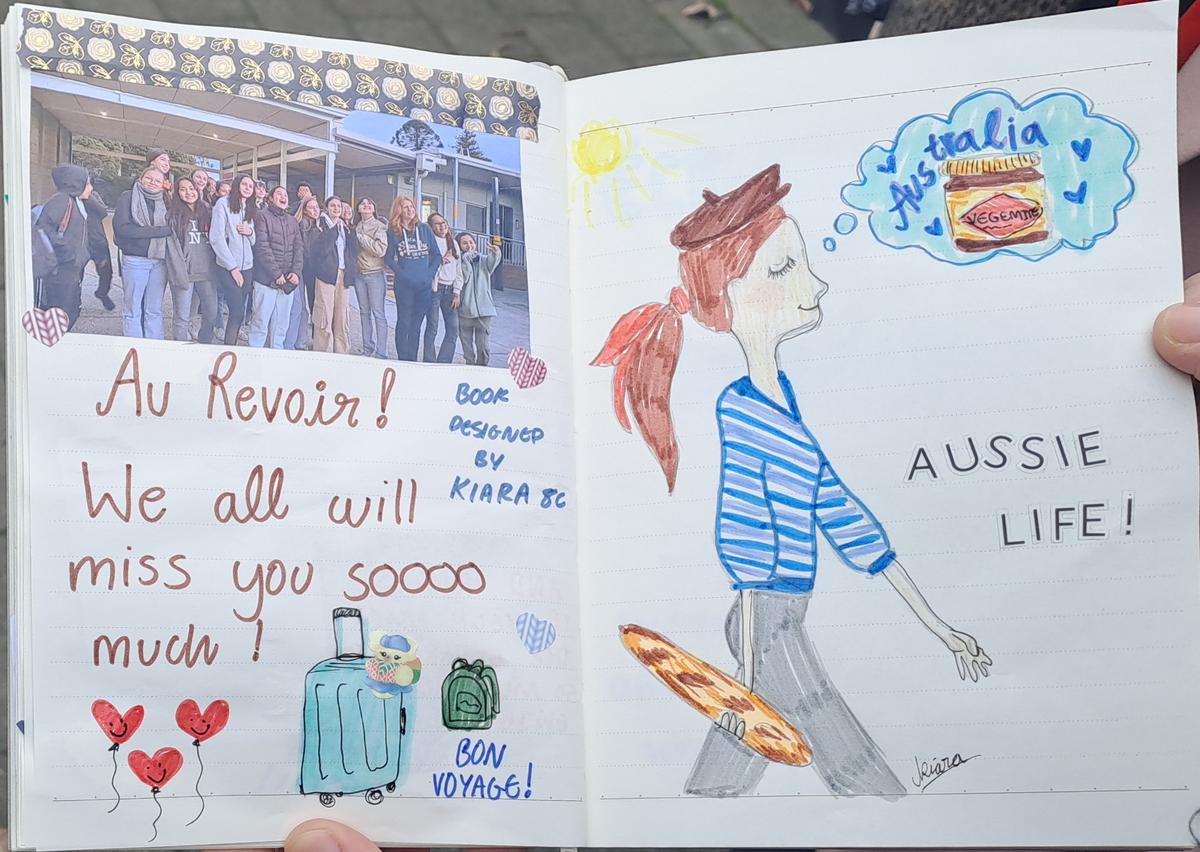 Au Revoir!
We all will
miss you soooo
much!
BOOK
DESIGNED
BY
KIARA 8C
BON
VOYAGE!
Australia
VEGEMITE
AUSSIE
LIFE!
Kiara